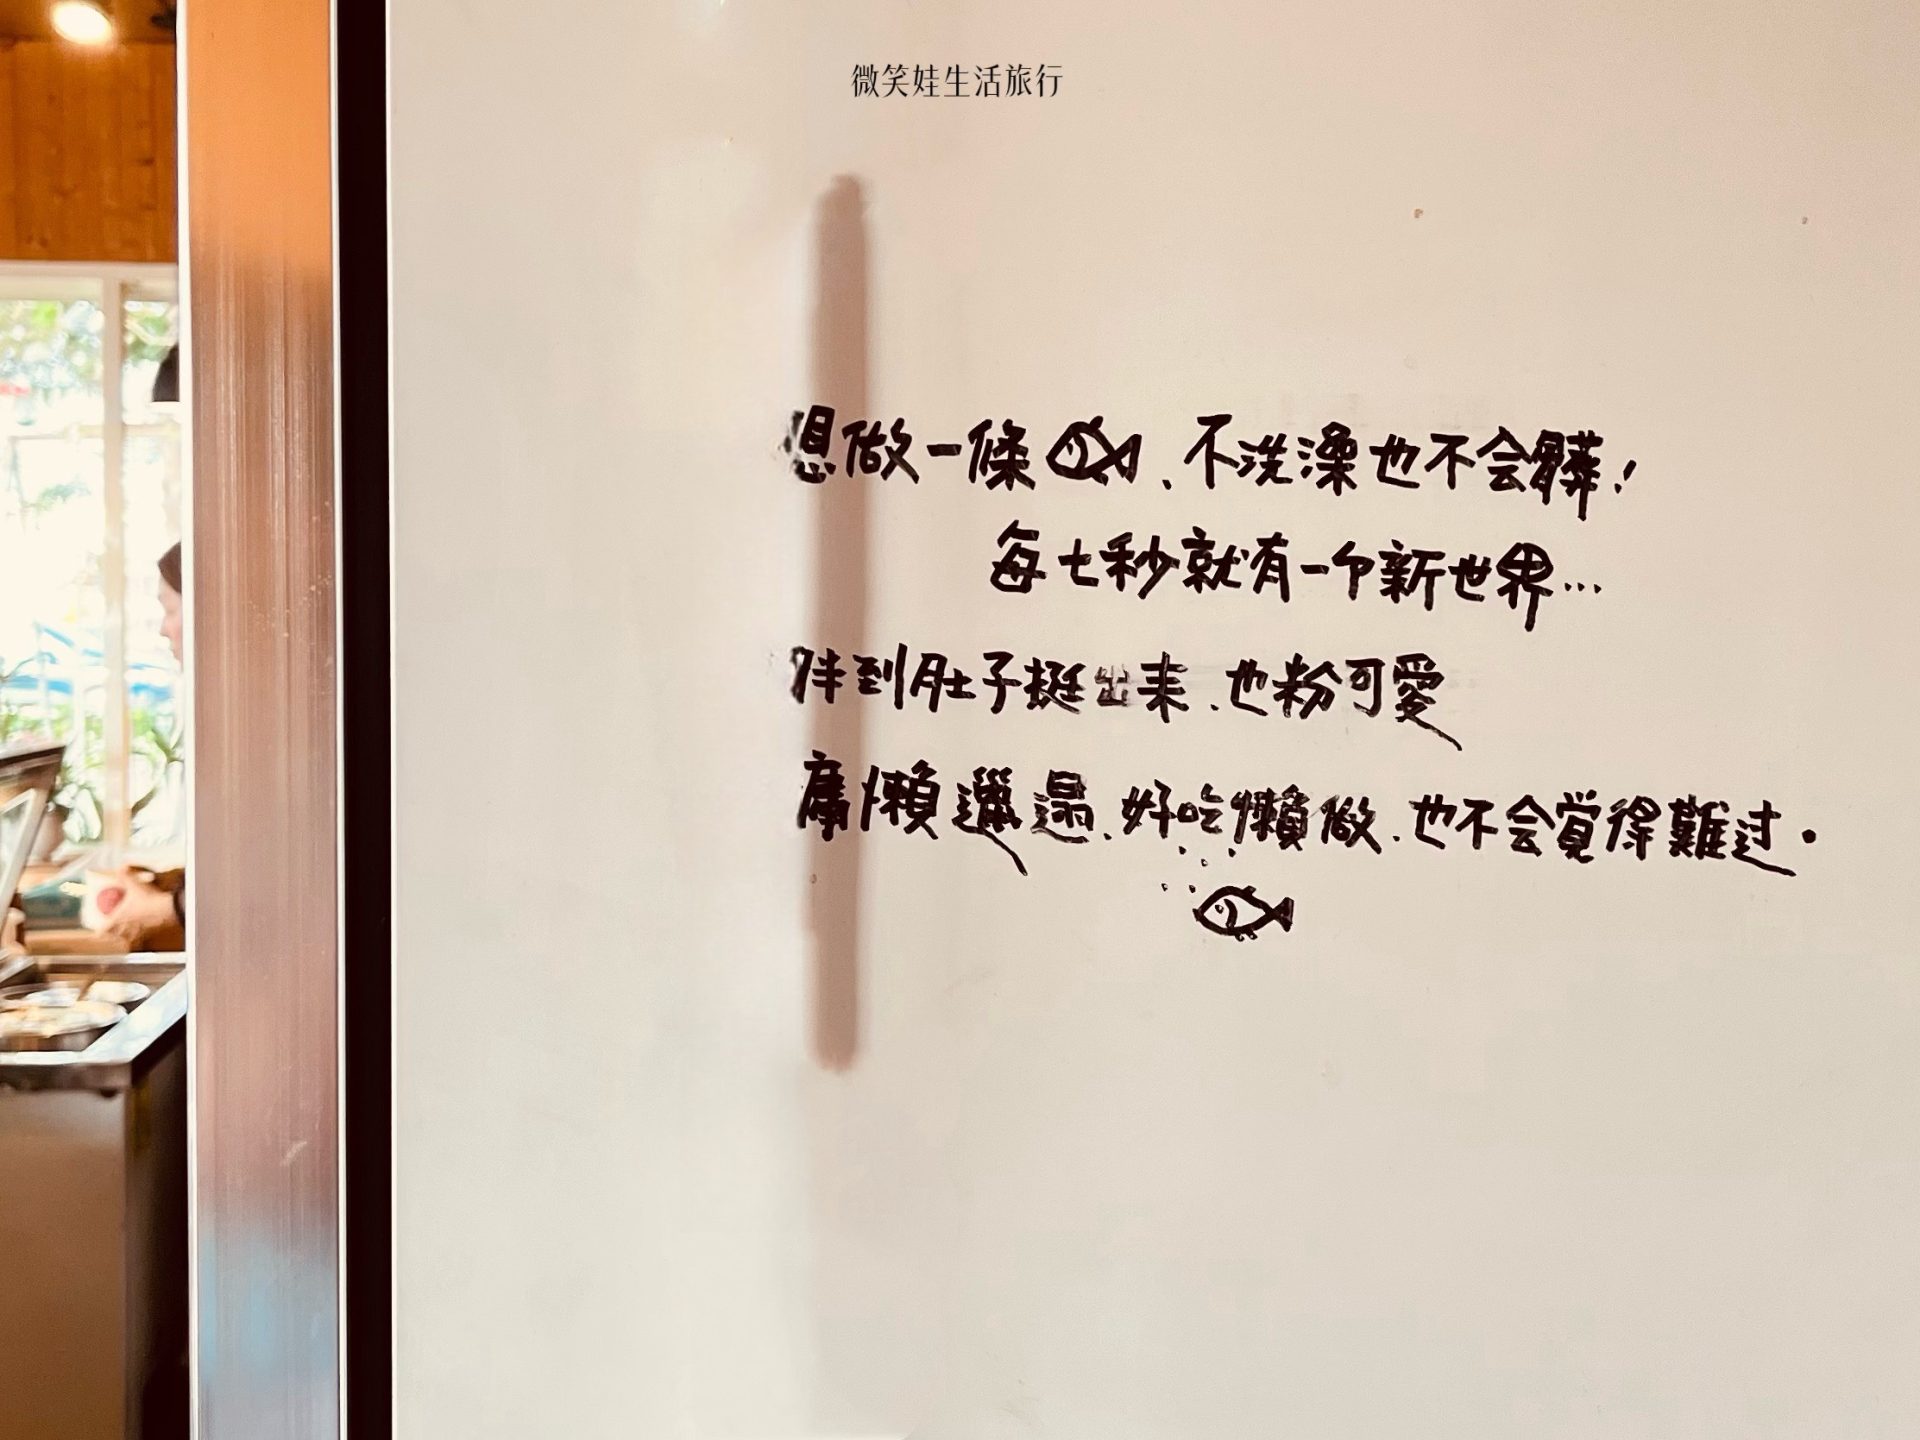 微笑娃生活旅行
想做一條、不洗澡也不会髒！
每七秒就有一个新世界…
胖到肚子挺出来、也粉可愛
慵懶邋遢、好吃懶做、也不会覚得難过。